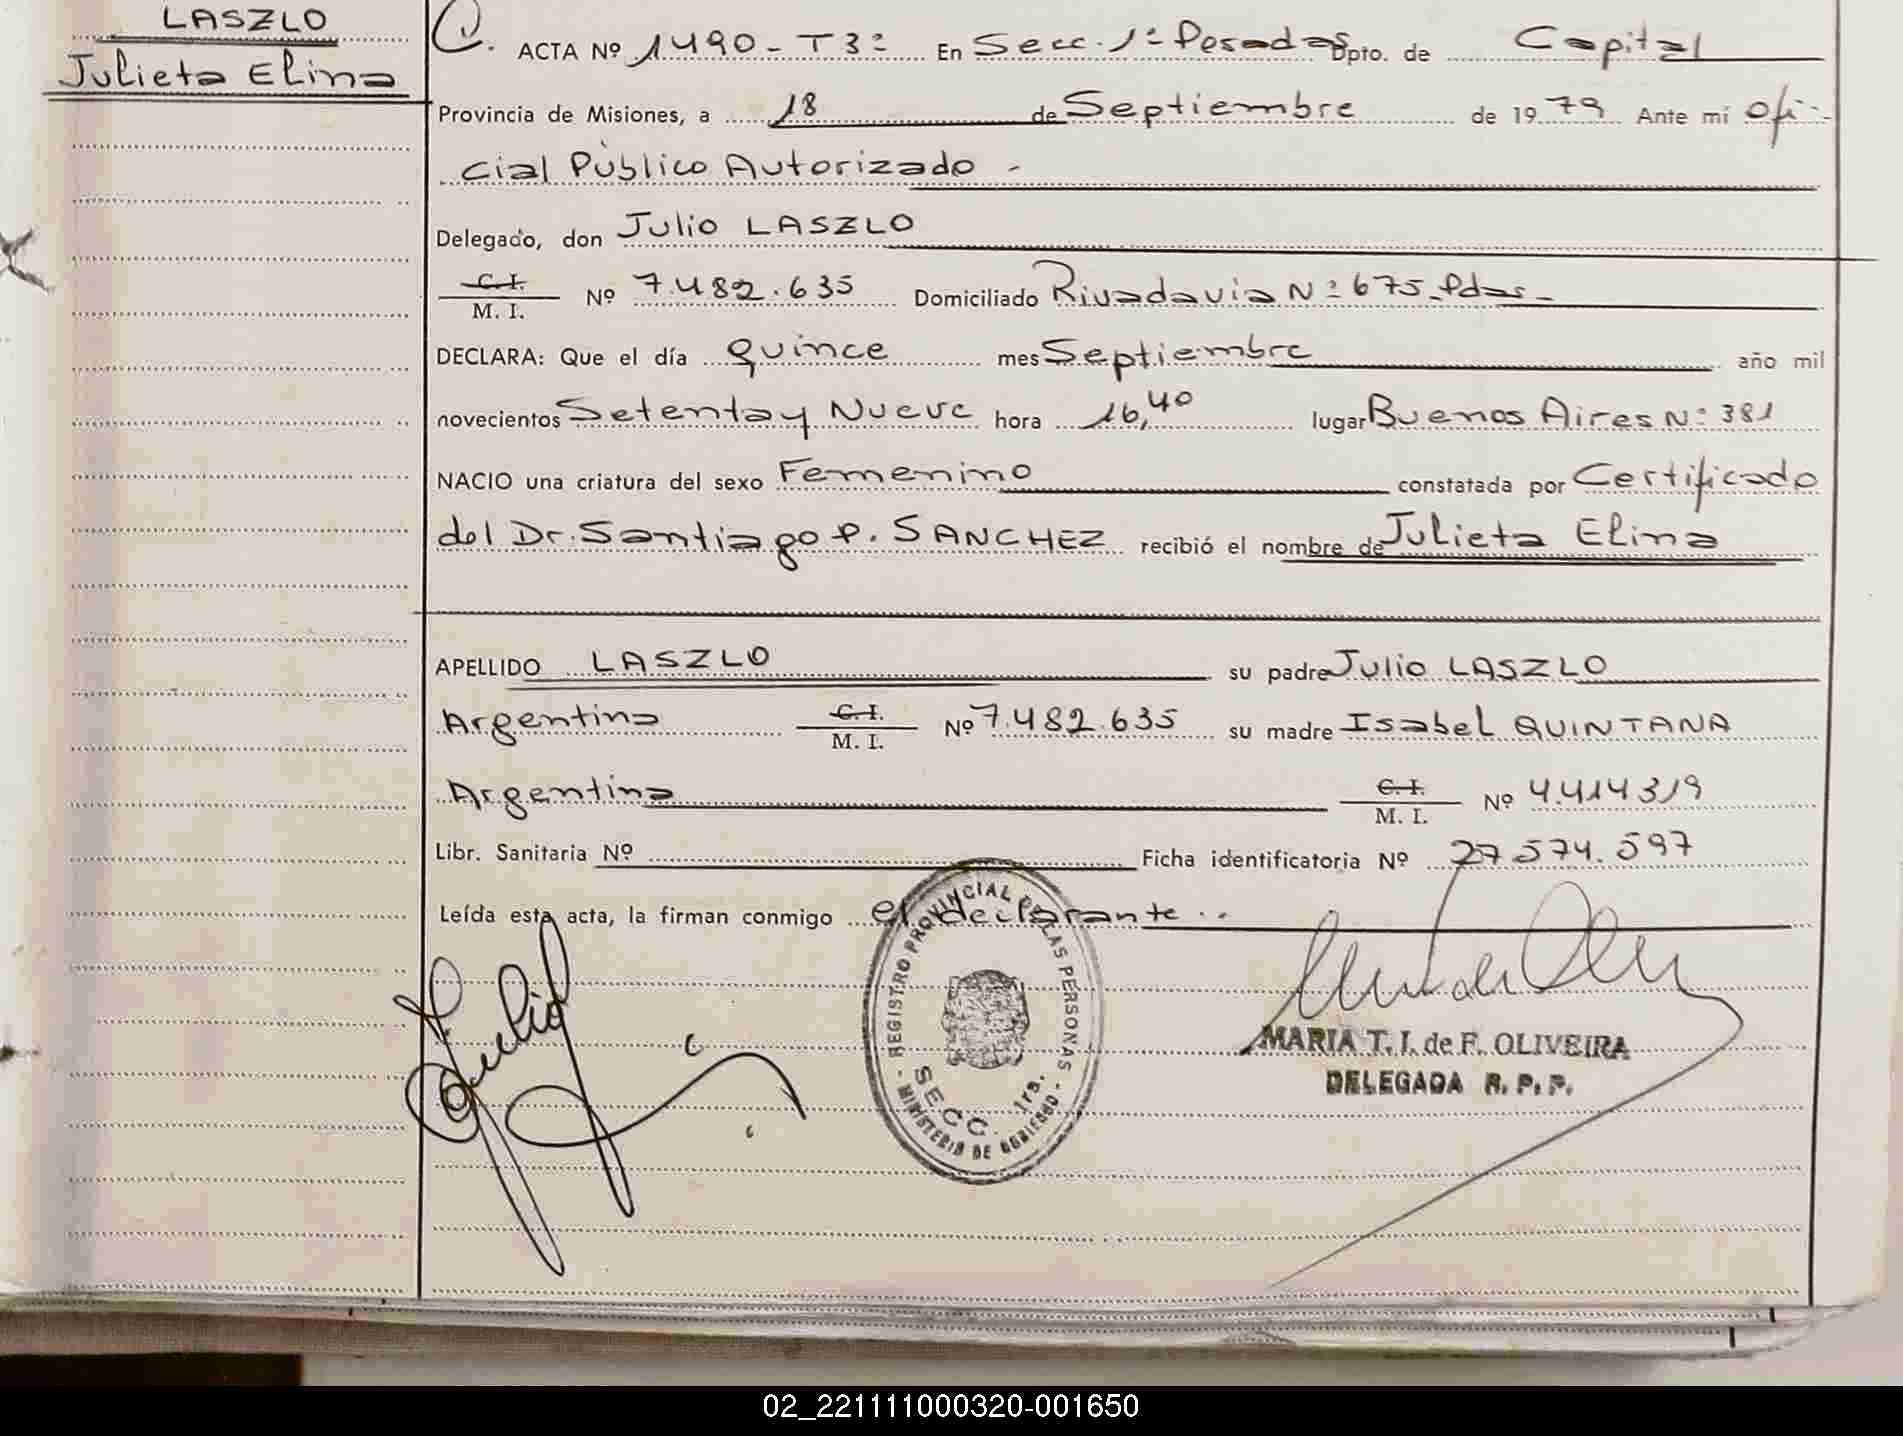 LASZLO
Julieta Elina
ACTA Nº 1490 - T 3º En Secc. 1º Posadas Dpto. de Capital
Provincia de Misiones, a 18 de Septiembre de 1979 Ante mí Ofi-
cial Público Autorizado -
Delegado, don Julio LASZLO
C. I.
M. I. Nº 7.482.635 Domiciliado Rivadavia Nº 675 - Pdas -
DECLARA: Que el día quince mes Septiembre año mil
novecientos Setenta y Nueve hora 16,40 lugar Buenos Aires Nº 381
NACIO una criatura del sexo Femenino constatada por Certificado
del Dr. Santiago P. SANCHEZ recibió el nombre de Julieta Elina
APELLIDO LASZLO su padre Julio LASZLO
Argentino C. I.
M. I. Nº 7.482.635 su madre Isabel QUINTANA
Argentina C. I.
M. I. Nº 4.414319
Libr. Sanitaria Nº Ficha identificatoria Nº 27.574.597
Leída esta acta, la firman conmigo el declarante..
REGISTRO PROVINCIAL DE LAS PERSONAS - MINISTERIO DE GOBIERNO -
SECC. 1ra.
MARIA T. I. de F. OLIVEIRA
DELEGADA R. P. P.
02_221111000320-001650